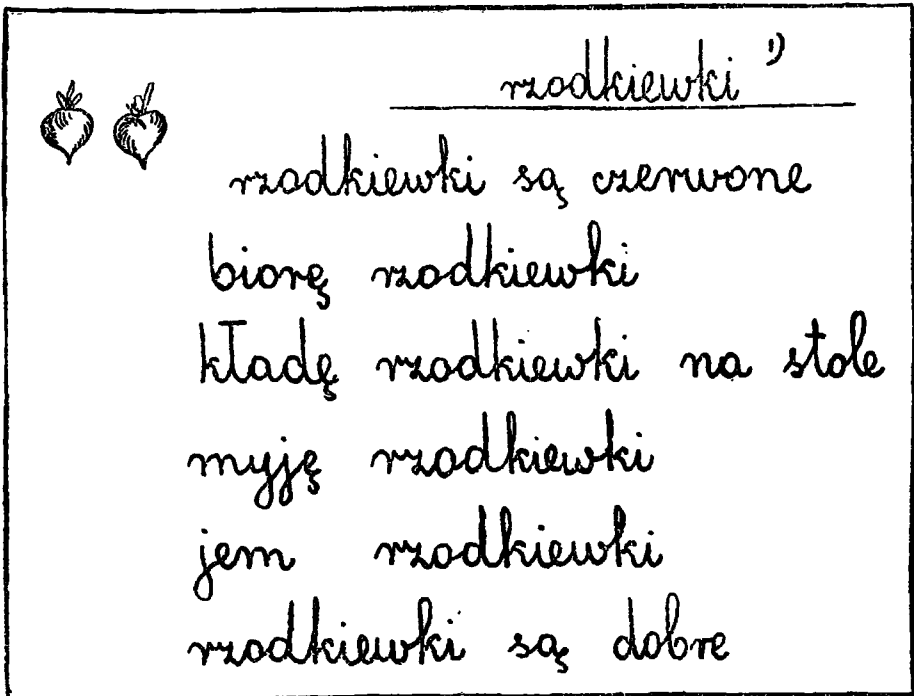 rzodkiewki ¹⁾
rzodkiewki są czerwone
biorę rzodkiewki
kładę rzodkiewki na stole
myję rzodkiewki
jem rzodkiewki
rzodkiewki są dobre